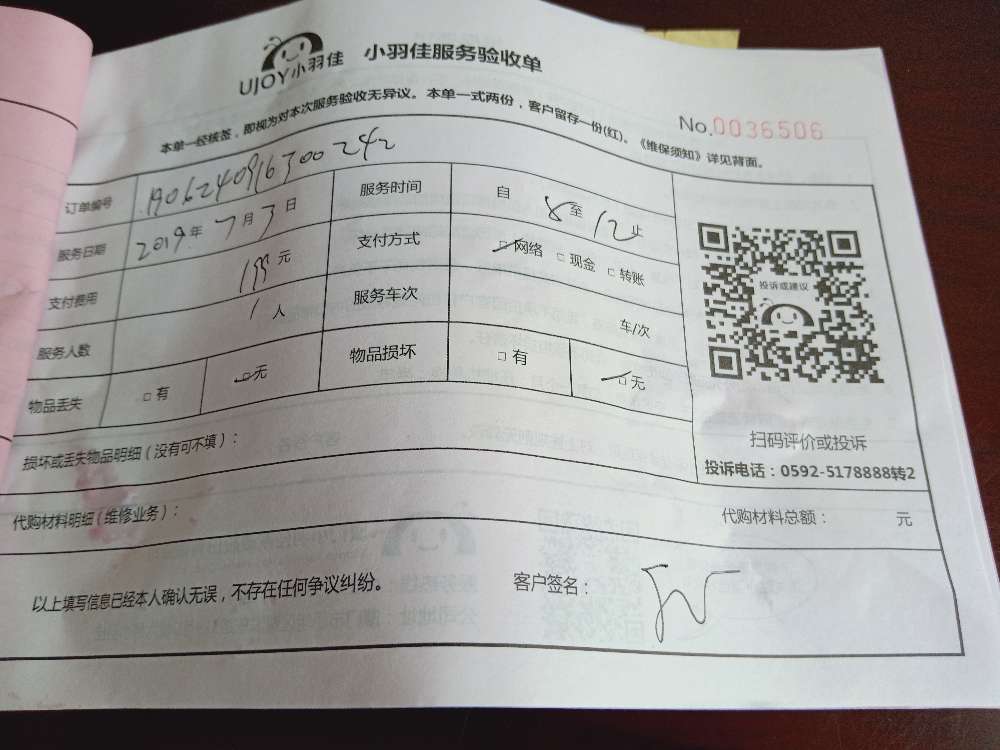 UJOY小羽佳 小羽佳服务验收单
No.0036506
本单一经核签,即视为对本次服务验收无异议。本单一式两份,客户留存一份(红)。《维保须知》详见背面。
订单编号 190624091630024２
服务日期 2019年7月3日 服务时间 自8至12止
支付费用 199元 支付方式 □网络 □现金 □转账
服务人数 1人 服务车次 车/次
物品丢失 □有 □无 物品损坏 □有 □无
投诉或建议
扫码评价或投诉
投诉电话:0592-5178888转2
损坏或丢失物品明细(没有可不填):
代购材料明细(维修业务): 代购材料总额: 元
以上填写信息已经本人确认无误,不存在任何争议纠纷。 客户签名: